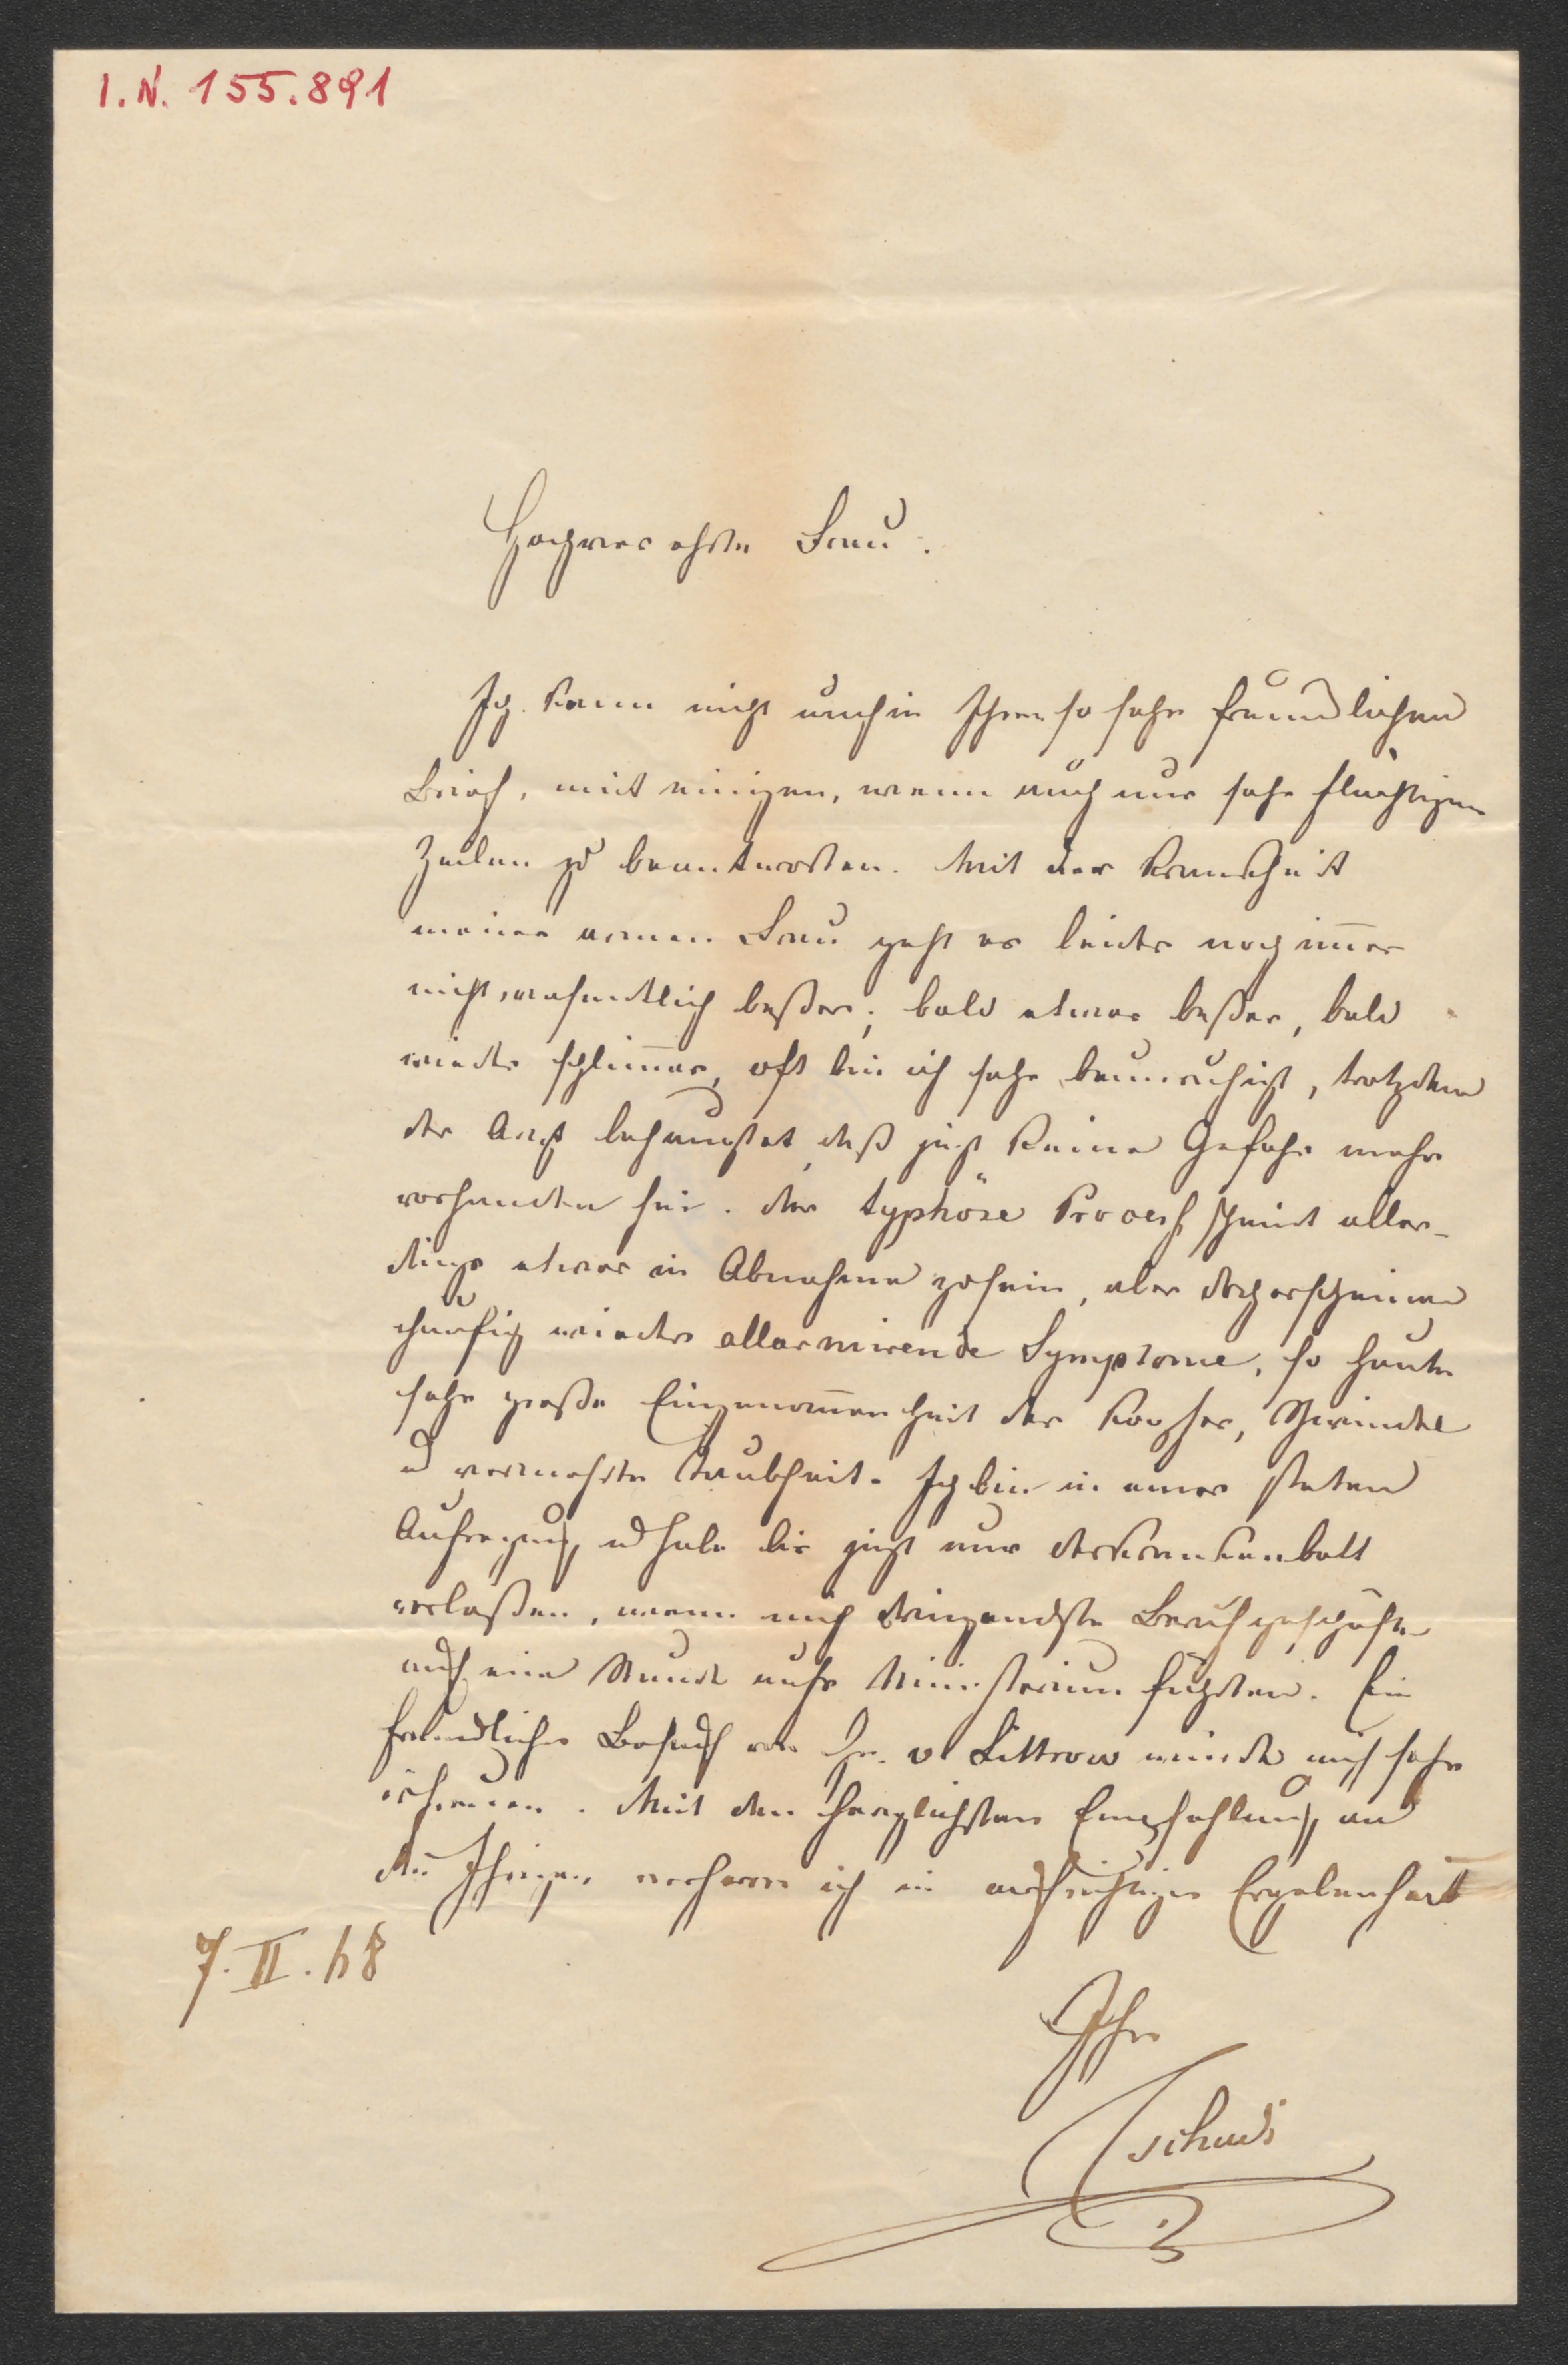 I.N. 155.891
Hochverehrte Frau.
Ich kann nicht umhin Ihren so sehr freundlichen
Brief, mit einigen, wenn auch nur sehr flüchtigen
Zeilen zu beantworten. Mit der Krankheit
meiner armen Frau geht es leider noch im̅er
nicht wesentlich beßer; bald etwas beßer, bald
wieder schlim̅er, oft bin ich sehr beunruhigt, trotzdem
der Arzt behauptet, daß jetzt keine Gefahr mehr
vorhanden sei. Der typhöse Process scheint aller-
dings etwas in Abnahme zu sein, aber doch erscheinen
häufig wieder allarmirende Symptome, so heute
sehr große Eingenom̅enheit des Kopfes, Schwindel
u vermehrte Taubheit. Ich bin in einer steten
Aufregung u habe bis jetzt nur das Krankenbett
verlaßen, wenn mich dringendste Berufsgeschäfte
auf eine Stunde aufs Ministerium führten. Ein
freundlicher Besuch von Hr. v. Littrow würde mich sehr
erfreuen. Mit den herzlichsten Empfehlung an
die Ihrigen verharre ich in aufrichtiger Ergebenheit
7.II.68
Ihr
Tschudi